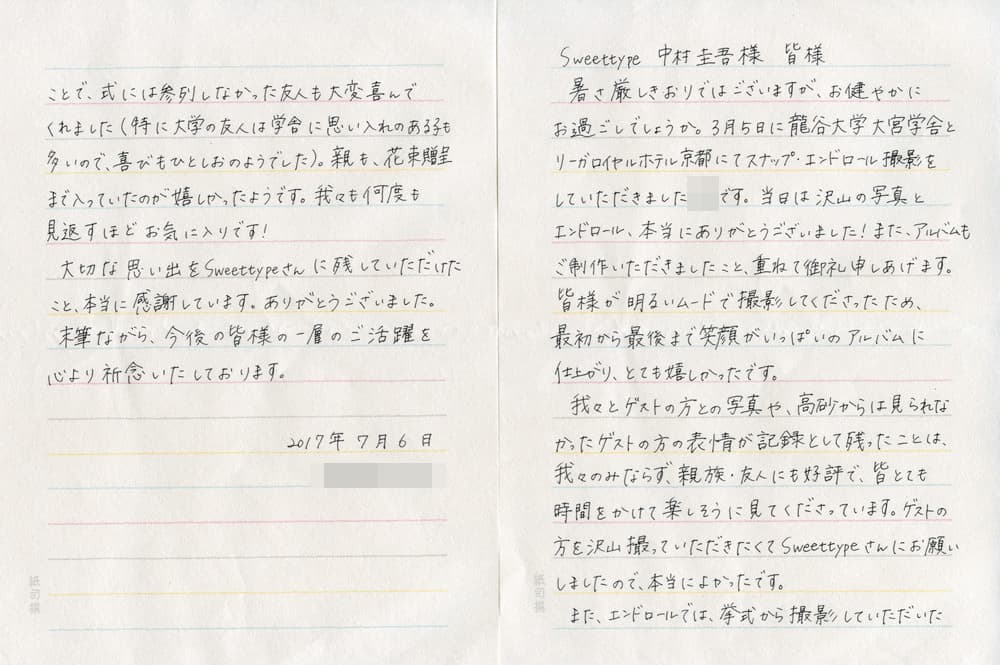 Sweettype 中村圭吾様 皆様
暑さ厳しきおりではございますが、お健やかに
お過ごしでしょうか。3月5日に龍谷大学大宮学舎と
リーガロイヤルホテル京都にてスナップ・エンドロール撮影を
していただきました です。当日は沢山の写真と
エンドロール、本当にありがとうございました！また、アルバムも
ご制作いただきましたこと、重ねて御礼申しあげます。
皆様が明るいムードで撮影してくださったため、
最初から最後まで笑顔がいっぱいのアルバムに
仕上がり、とても嬉しかったです。
我々とゲストの方との写真や、高砂からは見られな
かったゲストの方の表情が記録として残ったことは、
我々のみならず、親族・友人にも好評で、皆とても
時間をかけて楽しそうに見てくださっています。ゲストの
方を沢山撮っていただきたくてSweettypeさんにお願い
しましたので、本当によかったです。
また、エンドロールでは、挙式から撮影していただいた
紙司撰
ことで、式には参列しなかった友人も大変喜んで
くれました（特に大学の友人は学舎に思い入れのある子も
多いので、喜びもひとしおのようでした）。親も、花束贈呈
まで入っていたのが嬉しかったようです。我々も何度も
見返すほどお気に入りです！
大切な思い出をSweettypeさんに残していただけた
こと、本当に感謝しています。ありがとうございました。
末筆ながら、今後の皆様の一層のご活躍を
心より祈念いたしております。
2017年7月6日
紙司撰